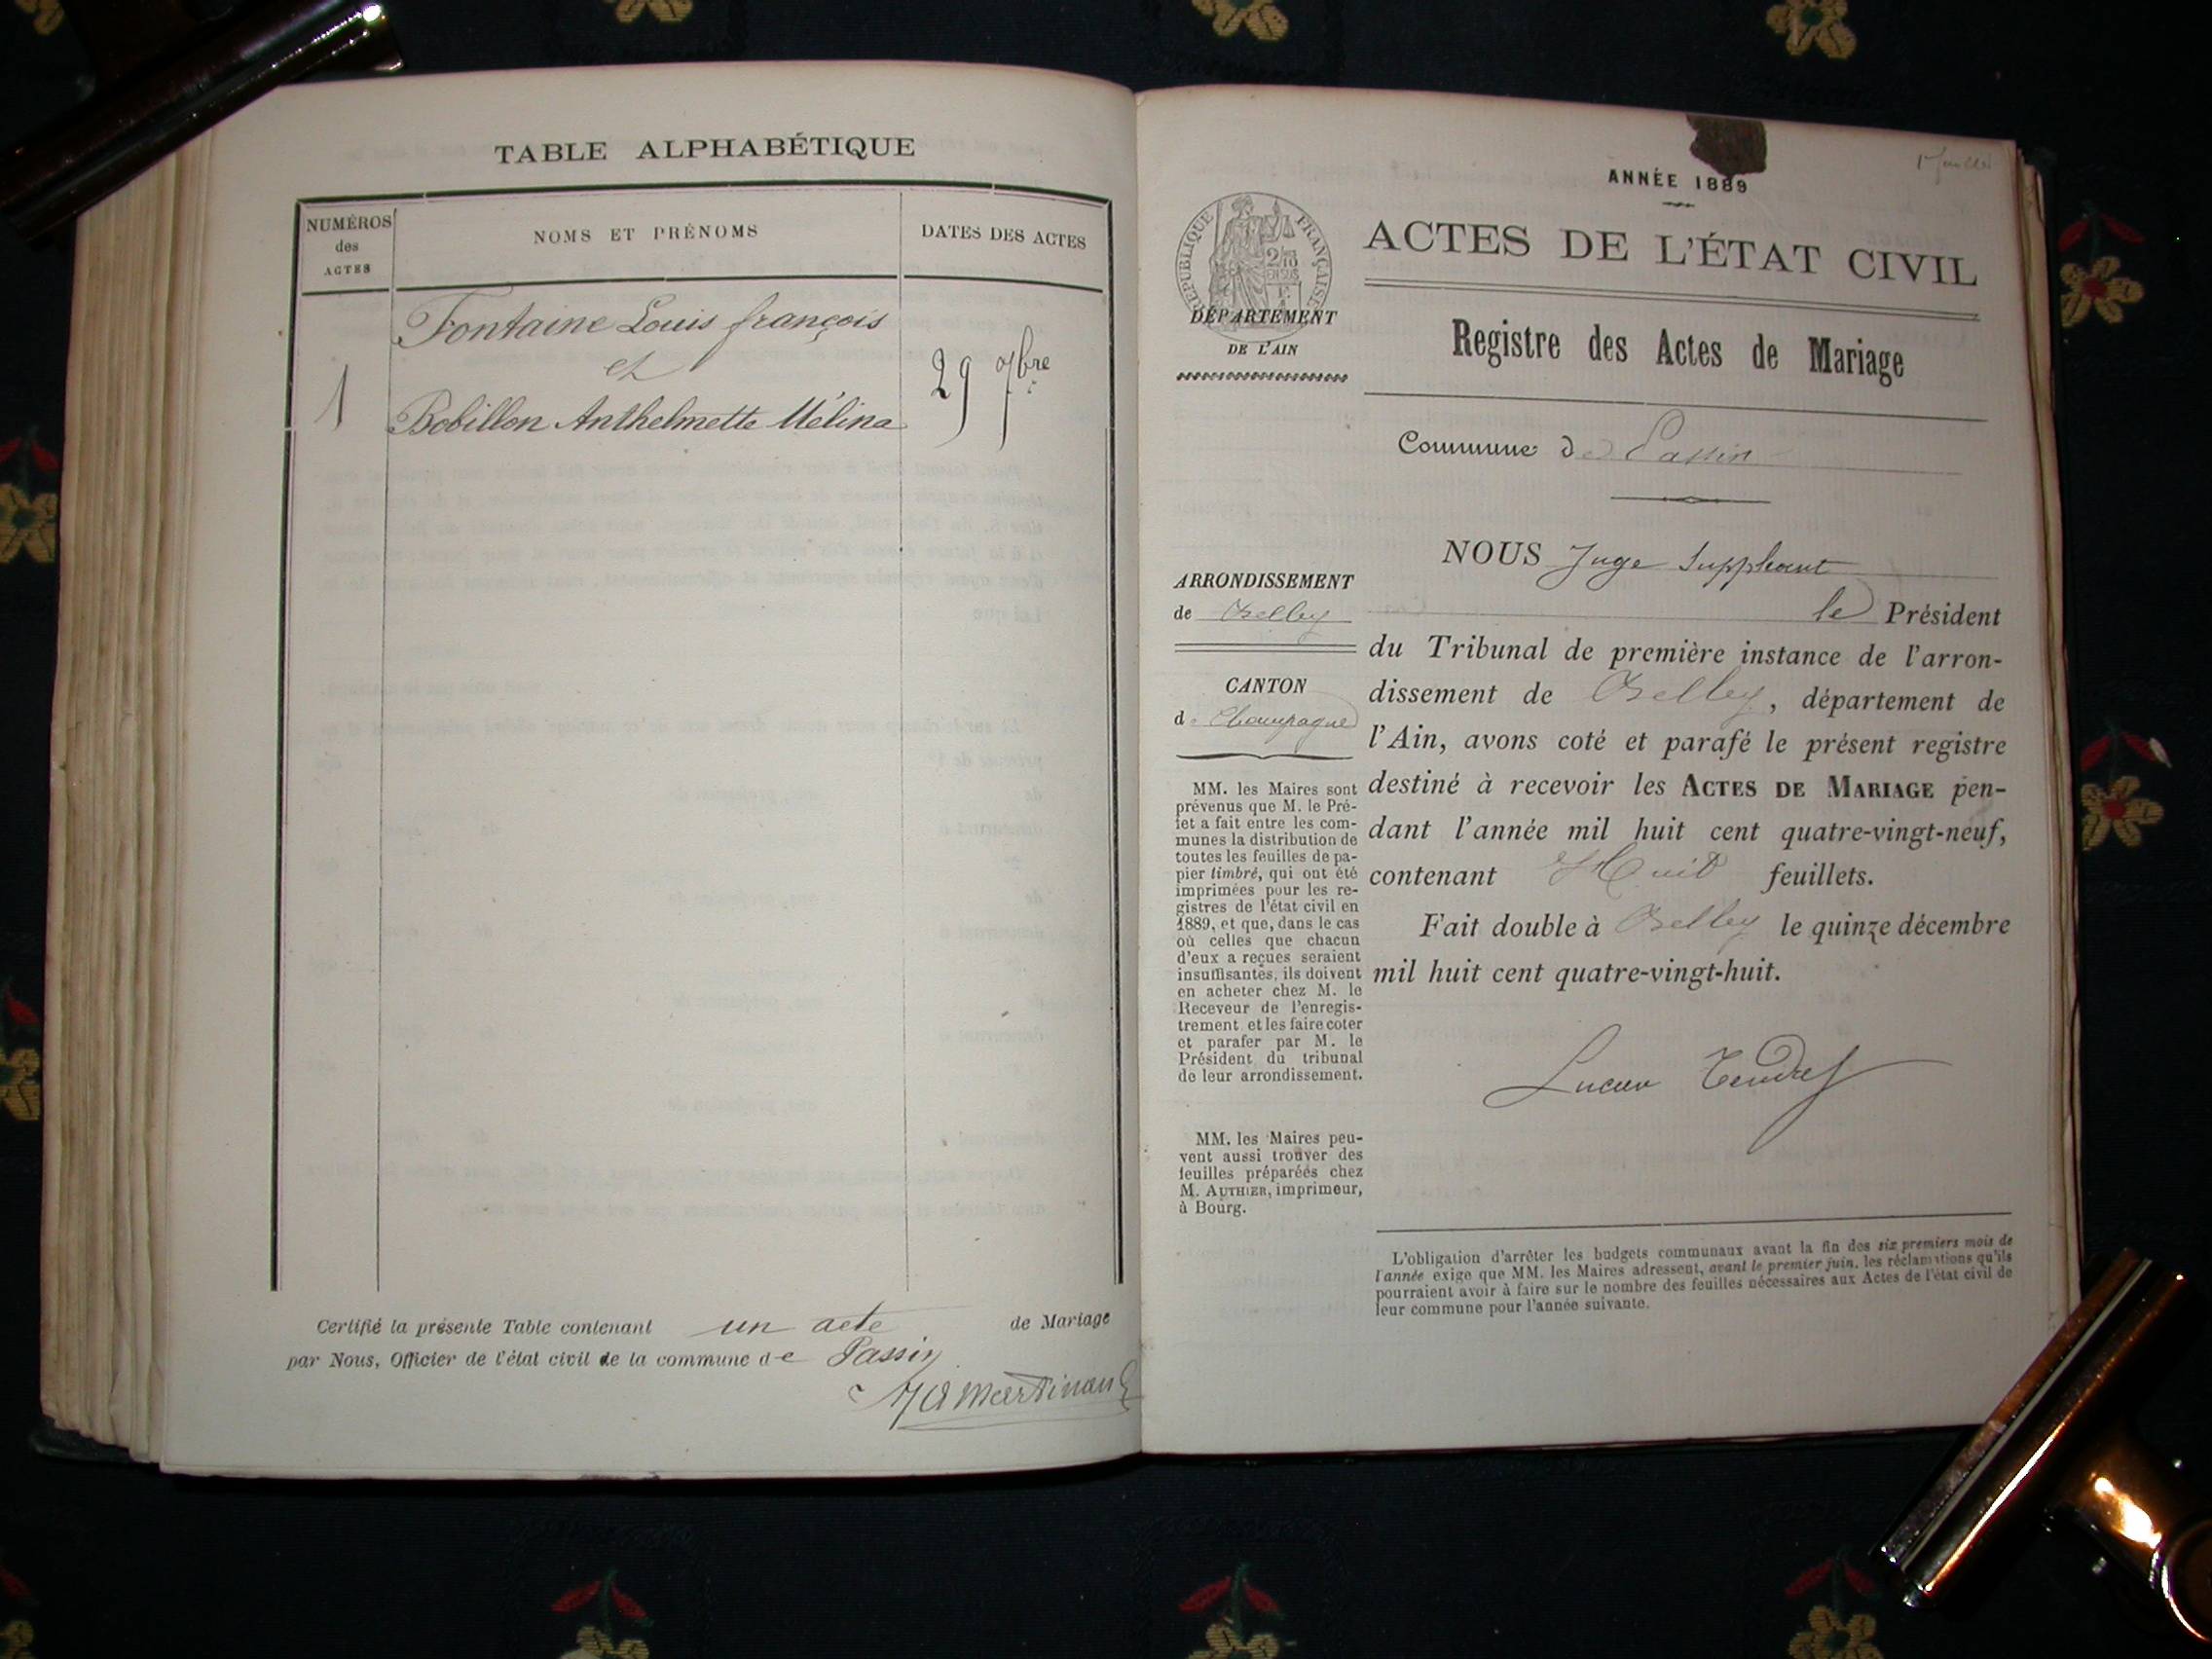 TABLE ALPHABÉTIQUE
NUMÉROS
des
ACTES
NOMS ET PRÉNOMS
DATES DES ACTES
1
Fontaine Louis françois
et
Bobillon Anthelmette Mélina
29 7bre
Certifié la présente Table contenant un acte de Mariage
par Nous, Officier de l'état civil de la commune de Passin
Martinand
1er feuillet
ANNÉE 1889
RÉPUBLIQUE FRANÇAISE
2/10
EN SUS
ACTES DE L'ÉTAT CIVIL
DÉPARTEMENT
DE L'AIN
Registre des Actes de Mariage
Commune de Passin
NOUS Juge Suppléant
le Président
du Tribunal de première instance de l'arron-
dissement de Belley, département de
l'Ain, avons coté et parafé le présent registre
destiné à recevoir les ACTES DE MARIAGE pen-
dant l'année mil huit cent quatre-vingt-neuf,
contenant Huit feuillets.
Fait double à Belley le quinze décembre
mil huit cent quatre-vingt-huit.
Lucien Tendret
ARRONDISSEMENT
de Belley
CANTON
de Champagne
MM. les Maires sont
prévenus que M. le Pré-
fet a fait entre les com-
munes la distribution de
toutes les feuilles de pa-
pier timbré, qui ont été
imprimées pour les re-
gistres de l'état civil en
1889, et que, dans le cas
où celles que chacun
d'eux a reçues seraient
insuffisantes, ils doivent
en acheter chez M. le
Receveur de l'enregis-
trement et les faire coter
et parafer par M. le
Président du tribunal
de leur arrondissement.
MM. les Maires peu-
vent aussi trouver des
feuilles préparées chez
M. AUTHIER, imprimeur,
à Bourg.
L'obligation d'arrêter les budgets communaux avant la fin des six premiers mois de
l'année exige que MM. les Maires adressent, avant le premier juin, les réclamations qu'ils
pourraient avoir à faire sur le nombre des feuilles nécessaires aux Actes de l'état civil de
leur commune pour l'année suivante.